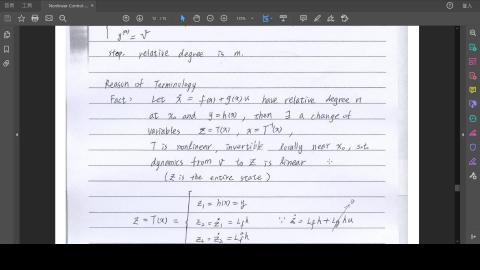 Nonlinear Control ...
y⁽ᵐ⁾ = v
stop. relative degree is m.
Reason of Terminology
Fact: Let ẋ = f(x) + g(x)u have relative degree n
at x₀ and y = h(x), then ∃ a change of
variables z = T(x), x = T⁻¹(x),
T is nonlinear, invertible locally near x₀, s.t.
dynamics from v to z is linear
(z is the entire state)
z₁ = h(x) = y
z = T(x) = z₂ = ż₁ = L_f h ∵ ż₁ = L_f h + L_g h u 0
z₃ = ż₂ = L_f² h